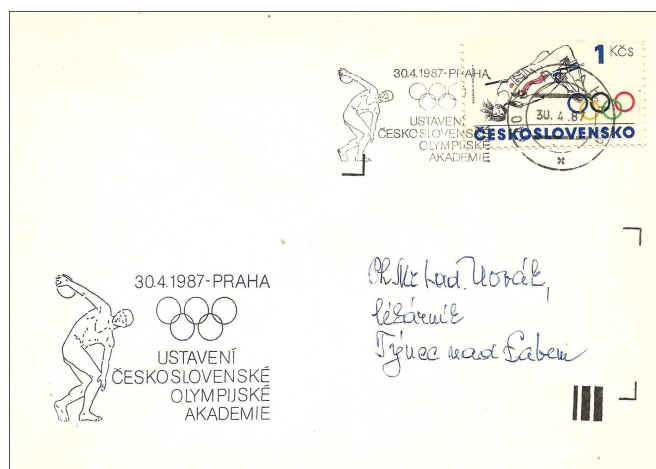 30.4.1987-PRAHA
USTAVENÍ
ČESKOSLOVENSKÉ
OLYMPIJSKÉ
AKADEMIE
1 Kčs
30.4.87
ČESKOSLOVENSKO
30.4.1987-PRAHA
USTAVENÍ
ČESKOSLOVENSKÉ
OLYMPIJSKÉ
AKADEMIE
PhMr Lad. Novák,
lékárník
Týnec nad Labem